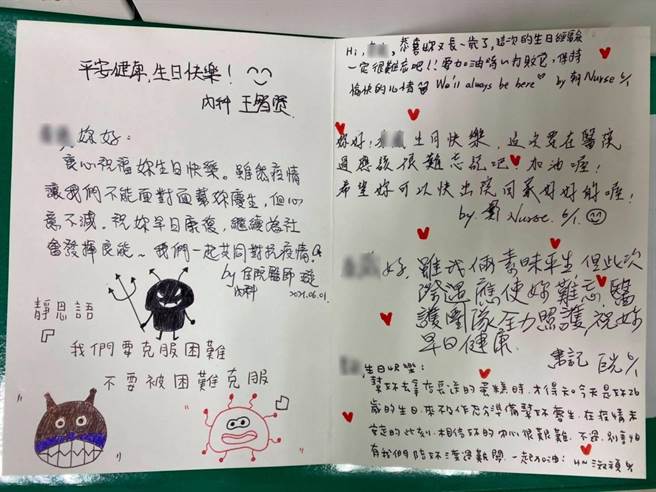 平安健康,生日快樂!
內科
妳好:
衷心祝福妳生日快樂。雖然疫情
讓我們不能面對面幫妳慶生,但心
意不減。祝妳早日康復,繼續為社
會發揮良能~我們一起共同對抗疫情!
by 住院醫師
內科 2021.06.01.
靜思語
『我們要克服困難
不要被困難克服』
Hi, 恭喜妳又長一歲了,這次的生日經驗
一定很難忘吧!!要加油 打敗它,保持
愉快的心情 We'll always be here by Nurse 6/1
妳好! 生日快樂,這次要在醫院
過應該很難忘記吧!加油喔!
希望妳可以快出院回家好好的喔!
by. 劉 Nurse. 6/1.
好,雖我倆素昧平生但此次
際遇應使妳難忘,醫
護團隊全力照護,祝妳
早日健康.
書記 6/1
生日快樂:
幫妳去拿店長送的蛋糕時,才得知今天是妳26
歲的生日,來不及充分準備幫妳慶生,在疫情未
定的此刻,相信妳的內心很艱難,不過,別害怕
有我們陪妳渡過難關,一起加油: HN 淑